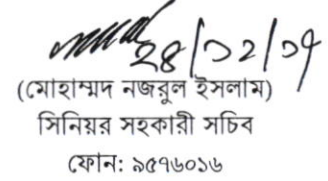 ২৪/১২/১৭
(মোহাম্মদ নজরুল ইসলাম)
সিনিয়র সহকারী সচিব
ফোন: ৯৫৭৬০১৬